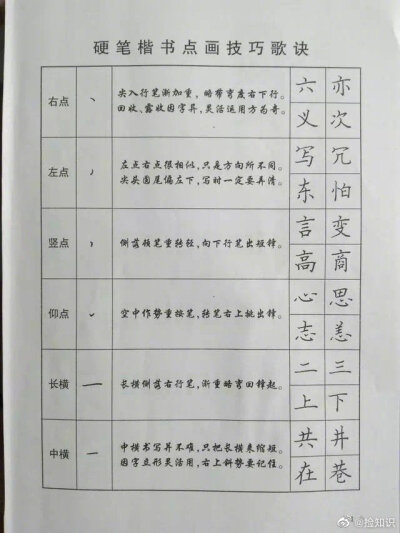 硬笔楷书点画技巧歌诀
右点
尖入行笔渐加重，略带弯度右下行。
回收、露收因字异，灵活运用方为奇。
六 亦
义 次
左点
左点右点很相似，只是方向所不同。
尖头圆尾偏左下，写时一定要弄清。
写 冗
东 怕
竖点
侧落顿笔重转轻，向下行笔出短锋。
言 变
高 商
仰点
空中作势重按笔，转笔右上挑出锋。
心 思
志 恙
长横
长横侧落右行笔，渐重略弯回锋起。
二 三
上 下
中横
中横书写并不难，只把长横来缩短。
因字立形灵活用，右上斜势要记住。
共 井
在 巷
@捡知识